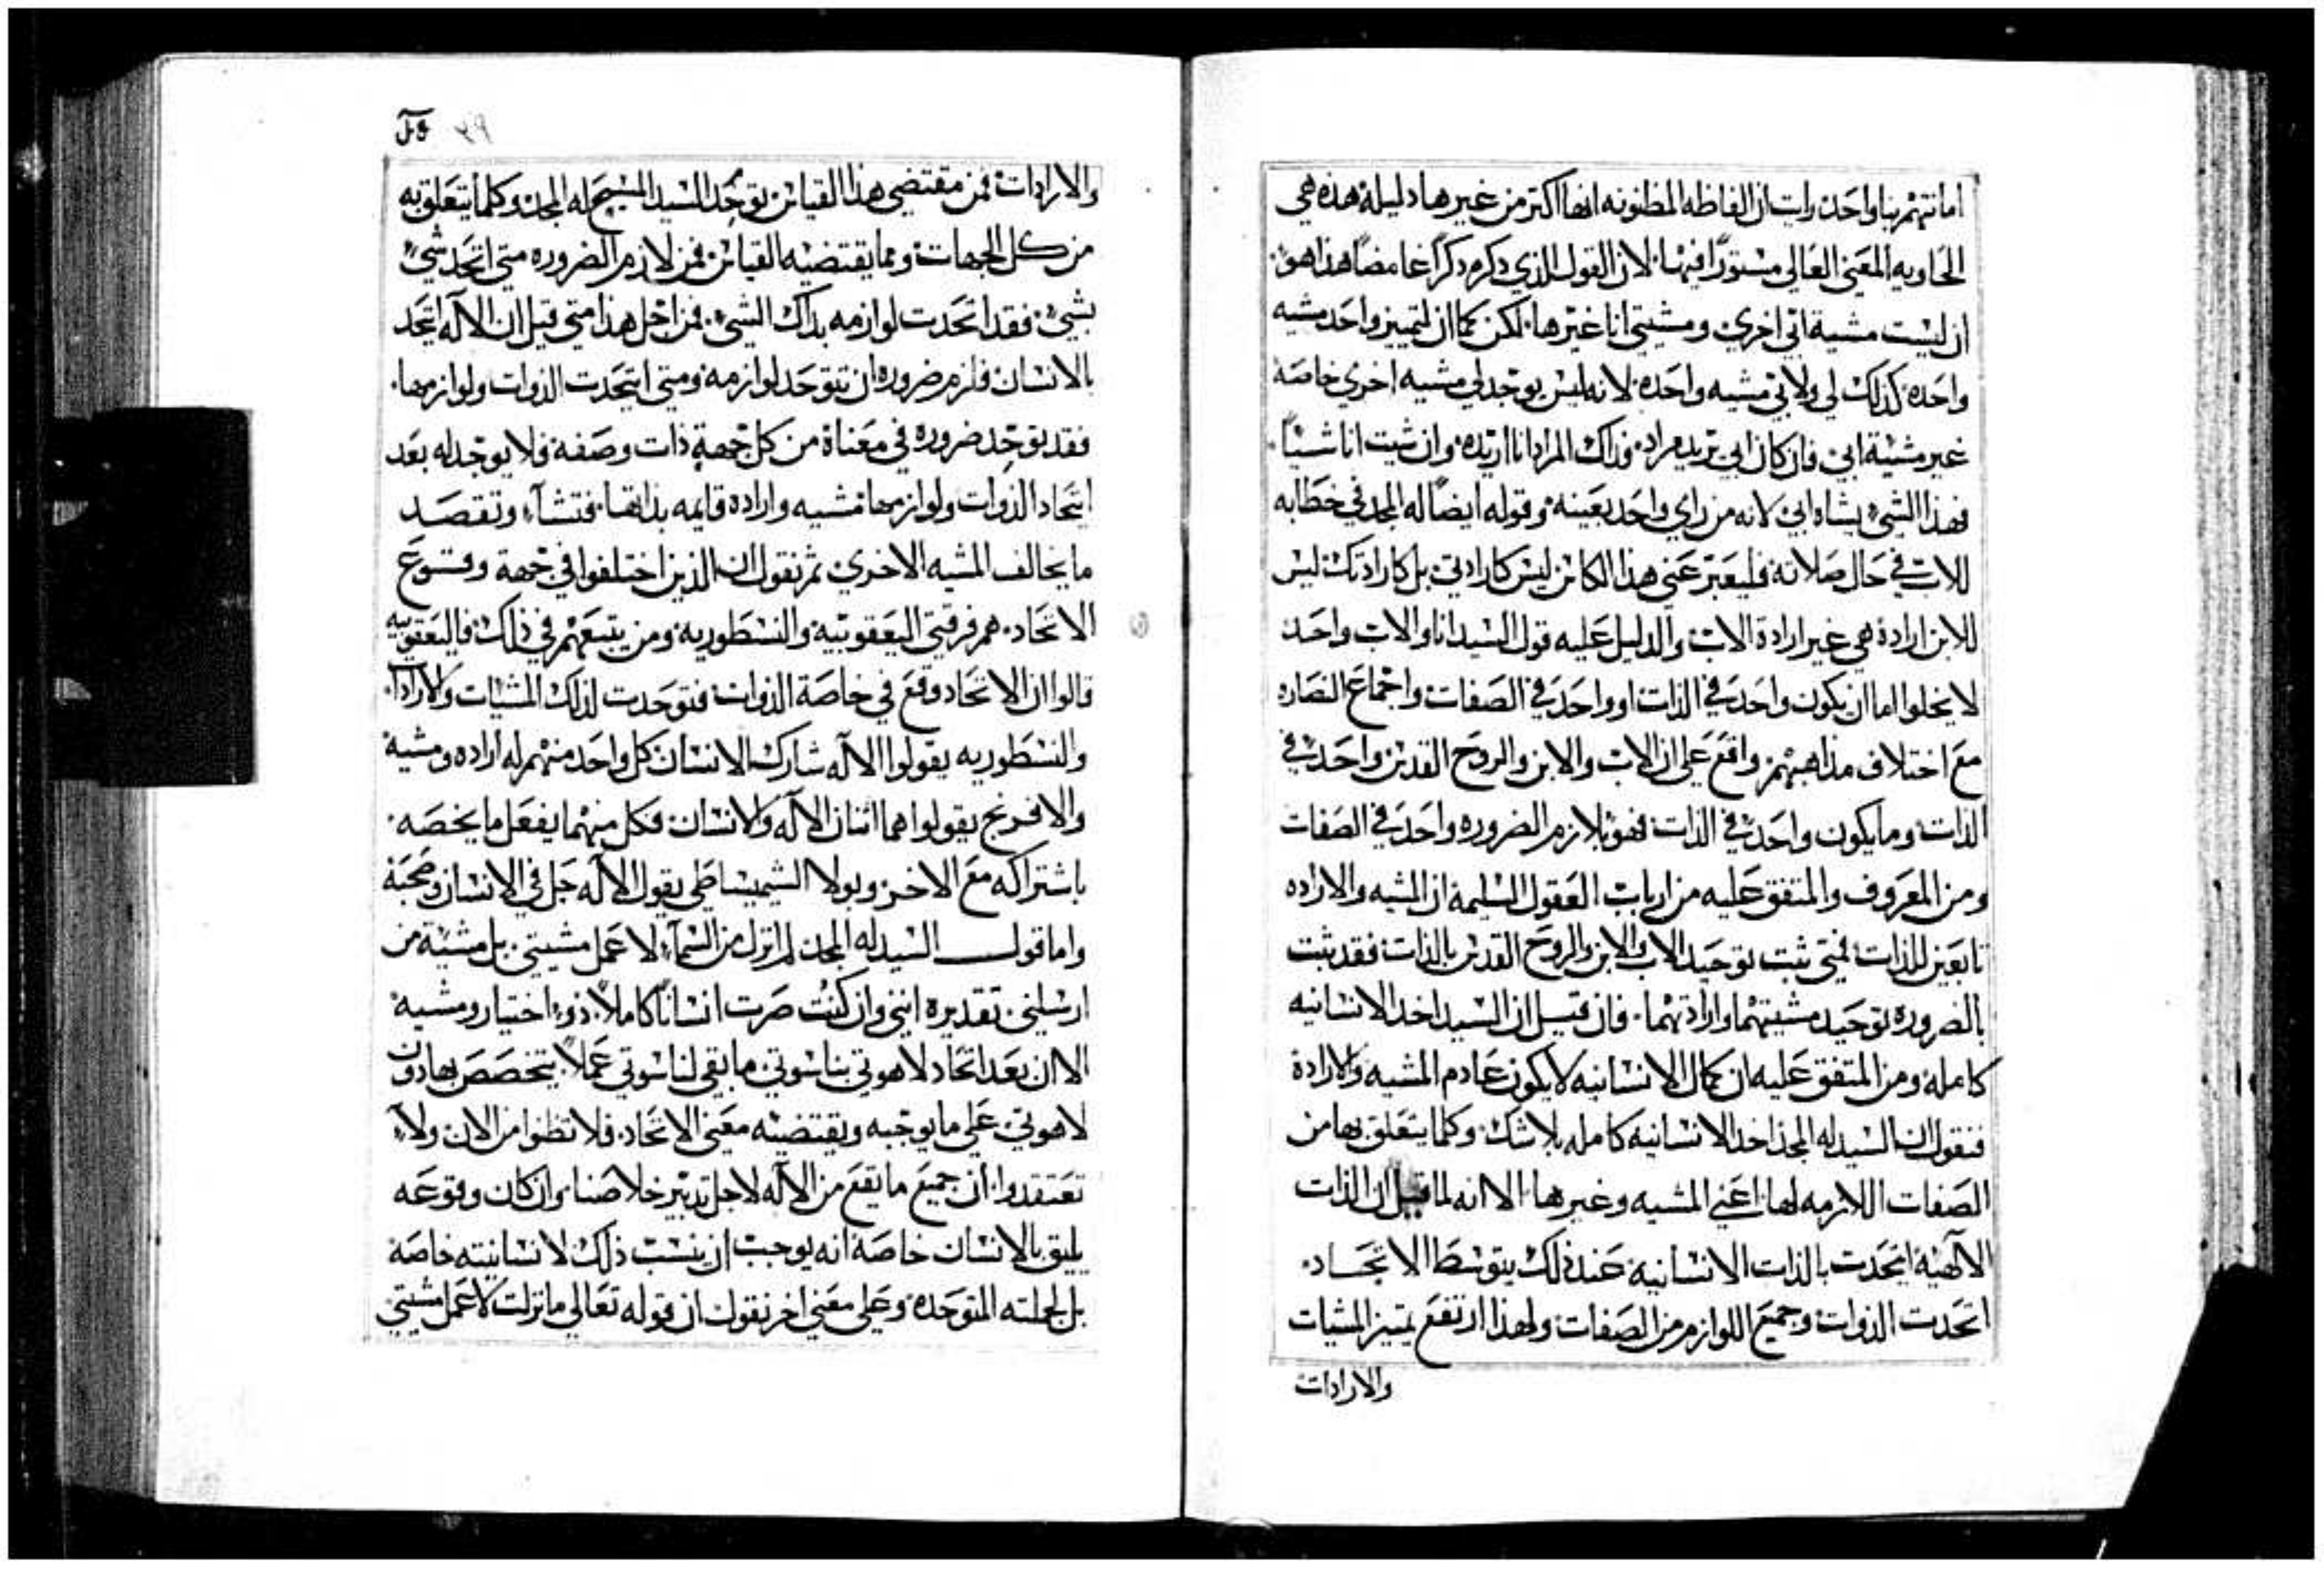 اما نتهم بنا واحده رايت ان الفاظه المظنونه انها اكتر من غيرها دليلة هذه هي
الحاويه المعني العالي مستورًا فيها. لان القول الذي دكره دكرًا غامضًا هذا هو.
ان ليست مشية ابي اخري ومشيتي انا غيرها. لكن كما ان لتمييز واحد مشيه
واحده كذلك لي ولابي مشيه واحده لانه ليس يوجد لي مشيه اخري خاصة
غير مشيئة ابي فان كان ابي يريد مراد. فذاك المراد انا اريده وان شيت انا شيئًا.
فهذا الشي يشاه ابي لانه من راي واحد بعينه. وقوله ايضًا له المجد في خطابه
للاب في حال صلاته فليعبر عني هذا الكائن ليس كارادتي بل كارادتك ليس
للابن ارادة هي غير ارادة الاب والدليل عليه قول السيد انا والاب واحد
لا يخلوا اما ان يكون واحد في الذات او واحد في الصفات واجماع النصاره
مع اختلاف مذاهبهم واقع علي ان الاب والابن والروح القدس واحد في
الذات وما يكون واحد في الذات فهو بلازم الضروره واحد في الصفات
ومن المعروف والمتفق عليه من ارباب العقول السليمة ان المشيه والاراده
تابعين للذات فمتي ثبت توحيد الاب والابن والروح القدس بالذات فقد ثبت
بالضروره توحيد مشيتهما وارادتهما. فان قيل ان السيد اخد الانسانيه
كاملة ومن المتفق عليه ان كمال الانسانيه لا يكون عادم المشيه والارادة
فنقول ان السيد له المجد اخد الانسانيه كامله بلا شك وكلما يتعلق بها من
الصفات اللازمه لها اعني المشيه وغيرها الا انه لما قيل ان الذات
الآلهيه اتحدت بالذات الانسانيه عند ذلك يتوسط الاتحاد.
اتحدت الذوات وجميع اللوازم من الصفات ولهذا ارتفع تمييز المشيات
والارادات
والارادات فمن مقتضي هذا القياس توحد السيد المسيح له المجد وكلما يتعلق به
من كل الجهات ومما يقتضيه القياس فمن لازم الضروره متي اتحد شي
بشي فقد اتحدت لوازمه بذاك الشي. فمن اجل هذا متي قيل ان الآله اتحد
بالانسان فلزم ضروره ان تتوحد لوازمه ومتي اتحدت الذوات ولوازمها.
فقد توحد ضروره في معناة من كل جهة ذات وصفه فلا يوجد له بعد
اتحاد الذوات ولوازمها مشيه واراده قايمه بذاتها فتشآء وتقصد
ما يخالف المشيه الاخري ثم نقول ان الذين اختلفوا في جهة وقوع
الاتحاد. هم فرقتي اليعقوبيه والنسطوريه ومن يتبعهم في ذلك فاليعقوبيه
قالوا ان الاتحاد وقع في خاصة الذوات فتوحدت لذلك المشيات والارادات
والنسطوريه يقولوا الاله شارك الانسان كل واحد منهم له اراده ومشية
والافرنج يقولوا هما اثنان الآله والانسان فكل منهما يفعل ما يخصه.
باشتراكه مع الاخر وبولا الشميساطي يقول الاله حل في الانسان وصحبه
واما قول السيد له المجد لم انزل من السمآء لاعمل مشيتي بل مشيئة من
ارسلني. تقديره انني وان كنت صرت انسانًا كاملاً. ذو اختيار ومشيه
الا ان بعد اتحاد لاهوتي بناسوتي ما بقي لناسوتي عملاً يتخصص بها دون
لاهوتي علي ما يوجبه ويقتضيه معني الاتحاد. فلا تظنوا من الان ولا
تعتقدوا ان جميع ما يقع من الآله لاجل تدبير خلاصنا وان كان وقوعه
يليق بالانسان خاصة انه يوجب ان ينسب ذلك لانسانيته خاصة
بل لجملته المتوحدة وعلي معني اخر نقول ان قوله تعالي ما نزلت لاعمل مشيتي